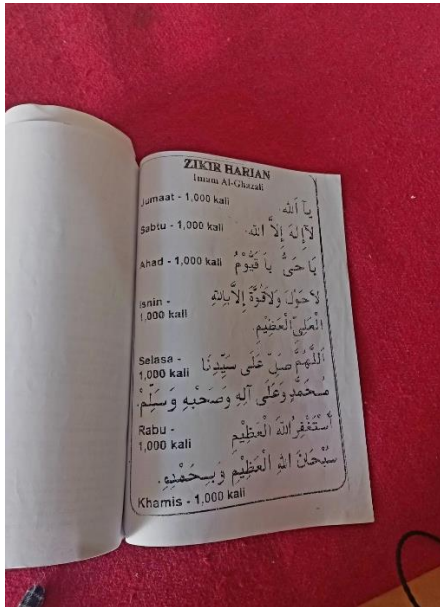 ZIKIR HARIAN
Imam Al-Ghazali
Jumaat - 1,000 kali يَآ اَللّٰه.
Sabtu - 1,000 kali لَآإِلَهَ إِلاَّ اللّٰه.
Ahad - 1,000 kali يَا حَيُّ يَا قَيُّوْمُ
Isnin - 1,000 kali لَاحَوْلَ وَلَاقُوَّةَ إِلاَّبِاللهِ
الْعَلِيِّ الْعَظِيْمِ.
Selasa - 1,000 kali اَللّٰهُمَّ صَلِّ عَلَى سَيِّدِنَا
مُحَمَّدٍ وَعَلَى آلِهِ وَصَحْبِهِ وَسَلِّمْ.
Rabu - 1,000 kali أَسْتَغْفِرُ اللهَ الْعَظِيْمِ
سُبْحَانَ اللهِ الْعَظِيْمِ وَبِحَمْدِهِ.
Khamis - 1,000 kali